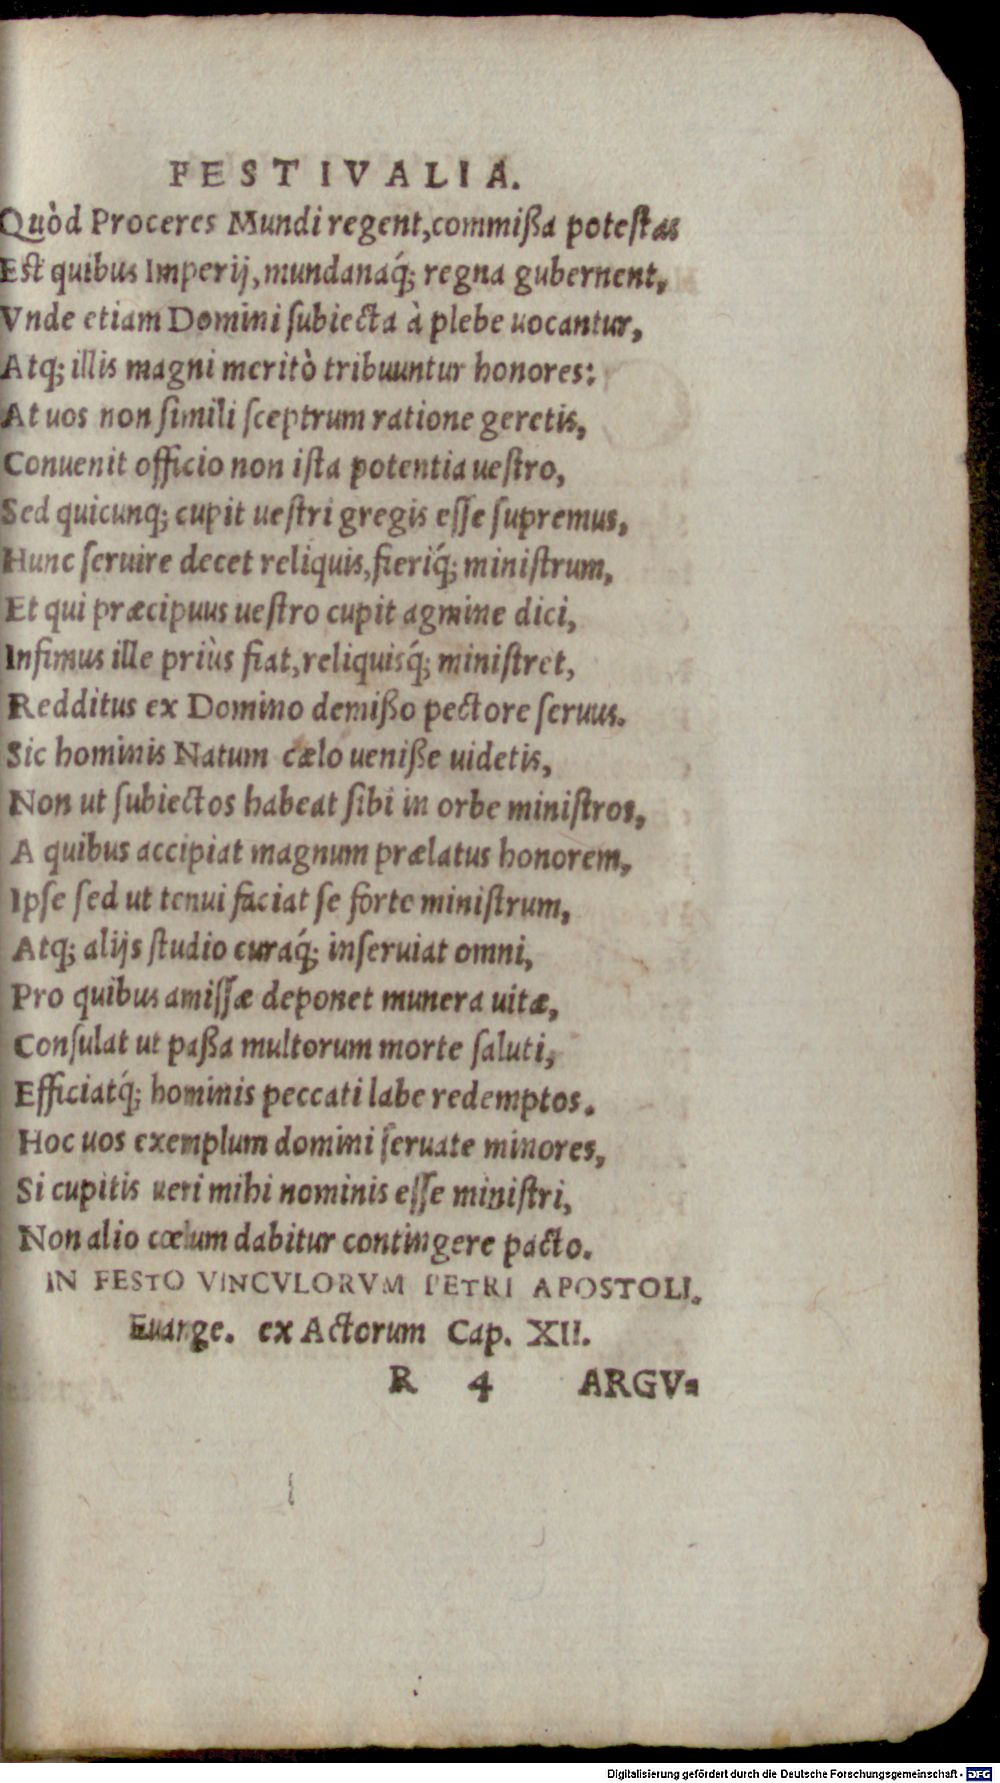 FESTIVALIA.
Quòd Proceres Mundi regent, commißa potestas
Est quibus Imperij, mundanaq́; regna gubernent,
Vnde etiam Domini ſubiecta à plebe uocantur,
Atq; illis magni meritò tribuuntur honores:
At uos non ſimili ſceptrum ratione geretis,
Conuenit officio non iſta potentia ueſtro,
Sed quicunq; cupit ueſtri gregis eſſe ſupremus,
Hunc ſeruire decet reliquis, fieriq́; miniſtrum,
Et qui præcipuus ueſtro cupit agmine dici,
Infimus ille priùs fiat, reliquisq́; miniſtret,
Redditus ex Domino demißo pectore ſeruus.
Sic hominis Natum cælo ueniße uidetis,
Non ut ſubiectos habeat ſibi in orbe miniſtros,
A quibus accipiat magnum prælatus honorem,
Ipſe ſed ut tenui faciat ſe forte miniſtrum,
Atq; alijs ſtudio curaq́; inſeruiat omni,
Pro quibus amiſſæ deponet munera uitæ,
Conſulat ut paßa multorum morte ſaluti,
Efficiatq́; hominis peccati labe redemptos.
Hoc uos exemplum domini ſeruate minores,
Si cupitis ueri mihi nominis eſſe miniſtri,
Non alio cœlum dabitur contingere pacto.
IN FESTO VINCVLORVM PETRI APOSTOLI.
Euange. ex Actorum Cap. XII.
R 4 ARGV=
Digitalisierung gefördert durch die Deutsche Forschungsgemeinschaft - DFG